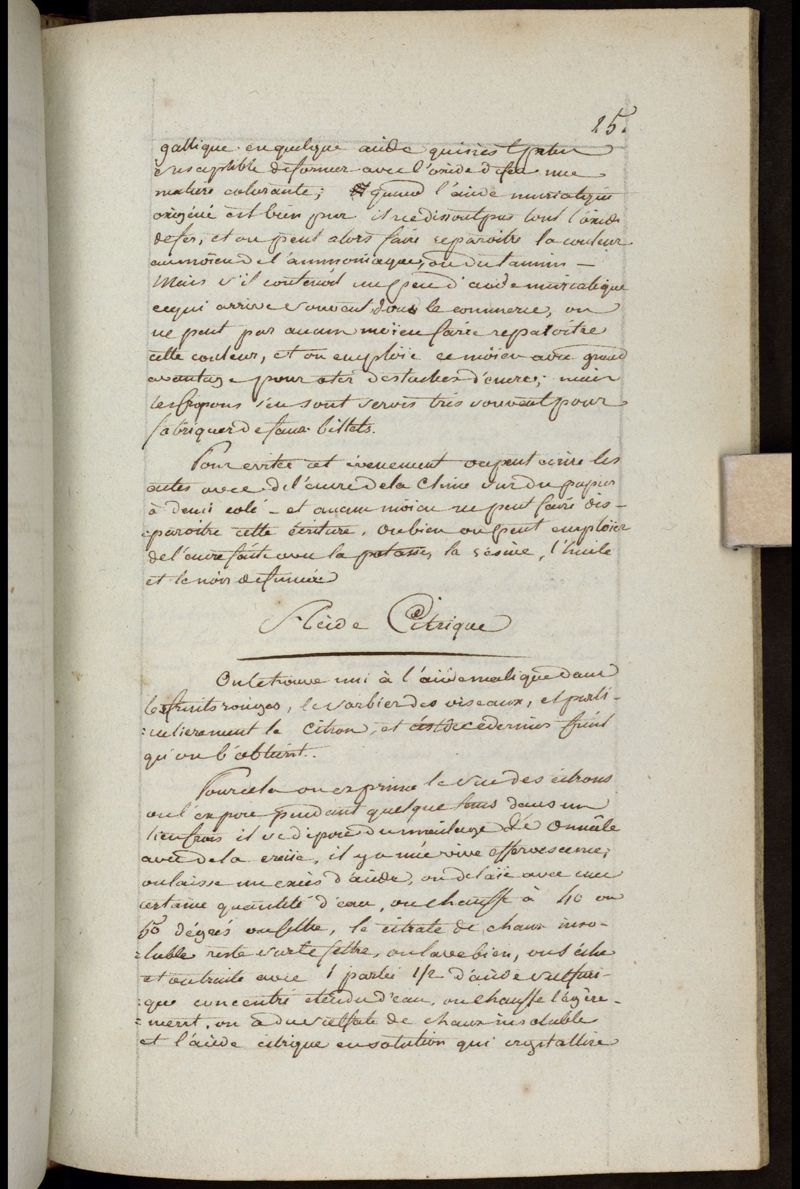 25.
gallique en quelque acide qui n'est plus
susceptible de former avec l'oxide de fer une
matiere colorante; quand l'acide muriatique
oxigéné est bien pur il ne dissout pas tout l'oxide
de fer, et on peut alors faire reparoitre la couleur
au moïen de l'ammoniaque, ou du tannin –
Mais s'il contenoit un peu d'acide muriatique
ce qui arrive souvent dans le commerce, on
ne peut par aucun moïen faire reparoitre
cette couleur, et on emploïe ce moïen avec grand
avantage pour oter des taches d'encre; mais
les fripons s'en sont servis très souvent pour
fabriquer de faux billets.
Pour eviter cet évenement on peut ecrire les
actes avec de l'encre de la Chine sur du papier
à demi colé – et aucun moïen ne peut faire dis-
:paroitre cette écriture. Ou bien on peut emploïer
de l'encre faite avec la potasse, la résine, l'huile
et le noir de fumée
Acide Citrique
On le trouve uni à l'acide malique dans
les fruits rouges, le sorbier des oiseaux, et parti-
:culierement le citron, et c'est de ce dernier fruit
qu'on l'obtient.
Pour cela on exprime le suc des citrons
on l'expose pendant quelque tems dans un
lieu frais il se dépose du mucilage on mêle
avec de la craïe, il y a une vive effervescence;
on laisse un excès d'acide, on delaïe avec une
certaine quantité d'eau, on chauffe à 40 ou
50 dégrés on filtre, le citrate de chaux inso-
:luble reste sur le filtre, on lave bien, on séche
et on traite avec 1 partie 1/2 d'acide sulfuri-
:que concentré etendu d'eau, on chauffe légère-
:ment, on a du sulfate de chaux insoluble
et l'acide citrique en solution qui crystallise